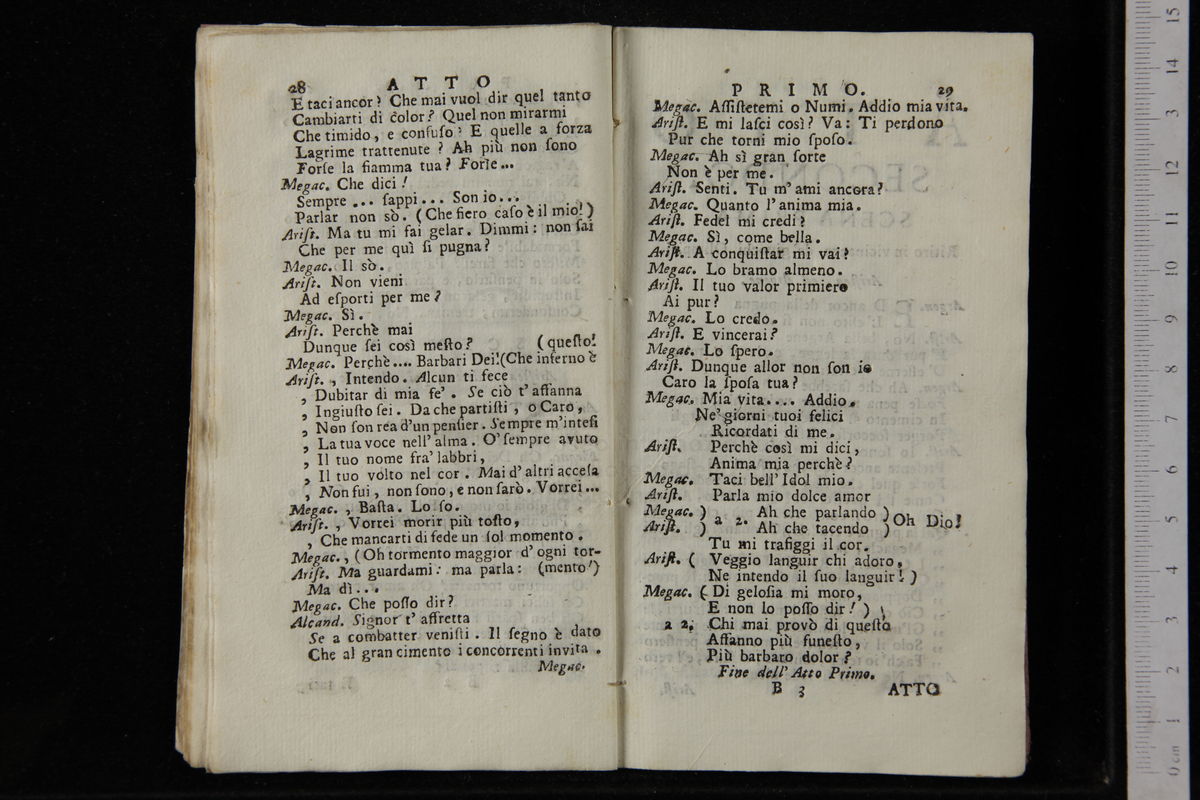 28 ATTO
E taci ancor? Che mai vuol dir quel tanto
Cambiarti di color? Quel non mirarmi
Che timido, e confuſo? E quelle a forza
Lagrime trattenute? Ah più non ſono
Forſe la fiamma tua? Forſe...
Megac. Che dici!
Sempre... ſappi... Son io...
Parlar non sò. (Che fiero caſo è il mio!)
Ariſt. Ma tu mi fai gelar. Dimmi: non ſai
Che per me quì ſi pugna?
Megac. Il sò.
Ariſt. Non vieni
Ad eſporti per me?
Megac. Sì.
Ariſt. Perchè mai
Dunque ſei così meſto? (queſto!
Megac. Perchè.... Barbari Dei!(Che inferno è
Ariſt. , Intendo. Alcun ti fece
, Dubitar di mia fe'. Se ciò t'affanna
, Ingiuſto ſei. Da che partiſti, o Caro,
, Non ſon rea d'un penſier. Sempre m'inteſi
, La tua voce nell'alma. O' ſempre avuto
, Il tuo nome fra' labbri,
, Il tuo volto nel cor. Mai d'altri acceſa
, Non fui, non ſono, e non ſarò. Vorrei...
Megac. , Baſta. Lo ſo.
Ariſt. , Vorrei morir più toſto,
, Che mancarti di fede un ſol momento.
Megac. , (Oh tormento maggior d'ogni tor-
Ariſt. Ma guardami: ma parla: (mento!)
Ma dì...
Megac. Che poſſo dir?
Alcand. Signor t'affretta
Se a combatter veniſti. Il ſegno è dato
Che al gran cimento i concorrenti invita.
Megac.
PRIMO. 29
Megac. Aſſiſtetemi o Numi. Addio mia vita.
Ariſt. E mi laſci così? Va: Ti perdono
Pur che torni mio ſpoſo.
Megac. Ah sì gran ſorte
Non è per me.
Ariſt. Senti. Tu m'ami ancora?
Megac. Quanto l'anima mia.
Ariſt. Fedel mi credi?
Megac. Sì, come bella.
Ariſt. A conquiſtar mi vai?
Megac. Lo bramo almeno.
Ariſt. Il tuo valor primiero
Ai pur?
Megac. Lo credo.
Ariſt. E vincerai?
Megac. Lo ſpero.
Ariſt. Dunque allor non ſon io
Caro la ſpoſa tua?
Megac. Mia vita.... Addio.
Ne' giorni tuoi felici
Ricordati di me.
Ariſt. Perchè così mi dici,
Anima mia perchè?
Megac. Taci bell'Idol mio.
Ariſt. Parla mio dolce amor
Megac. ) a 2. Ah che parlando ) Oh Dio!
Ariſt. ) Ah che tacendo )
Tu mi trafiggi il cor.
Ariſt. ( Veggio languir chi adoro,
Ne intendo il ſuo languir! )
Megac. ( Di geloſia mi moro,
E non lo poſſo dir! )
a 2. Chi mai provò di queſto
Affanno più funeſto,
Più barbaro dolor?
Fine dell'Atto Primo.
B 3 ATTO
0 cm 1 2 3 4 5 6 7 8 9 10 11 12 13 14 15